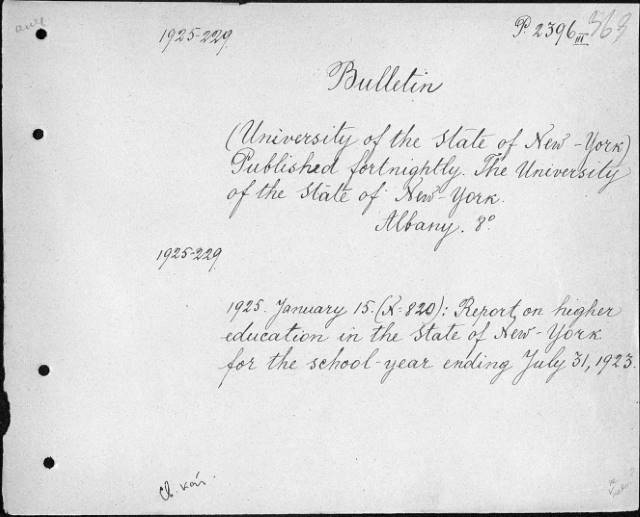 1925-229.
P 2396 III 363
Bulletin
(University of the State of New-York)
Published fortnightly. The University
of the State of New-York.
Albany. 8°
1925-229
1925. January 15. (N=820): Report on higher
education in the State of New-York
for the school-year ending July 31, 1923.